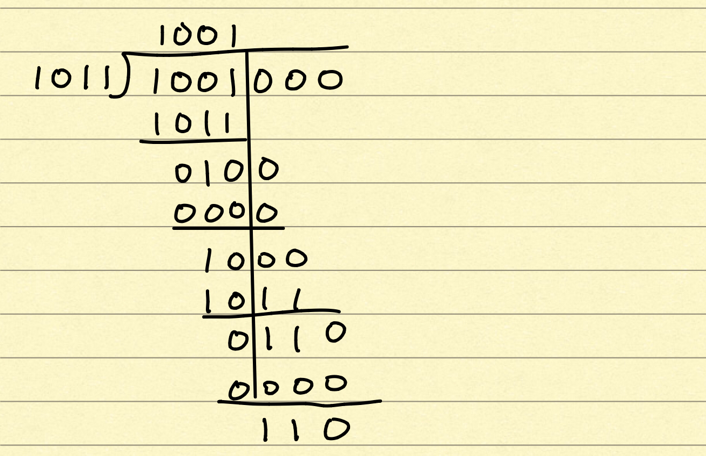 1001
1011)1001000
1011
0100
0000
1000
1011
0110
0000
110